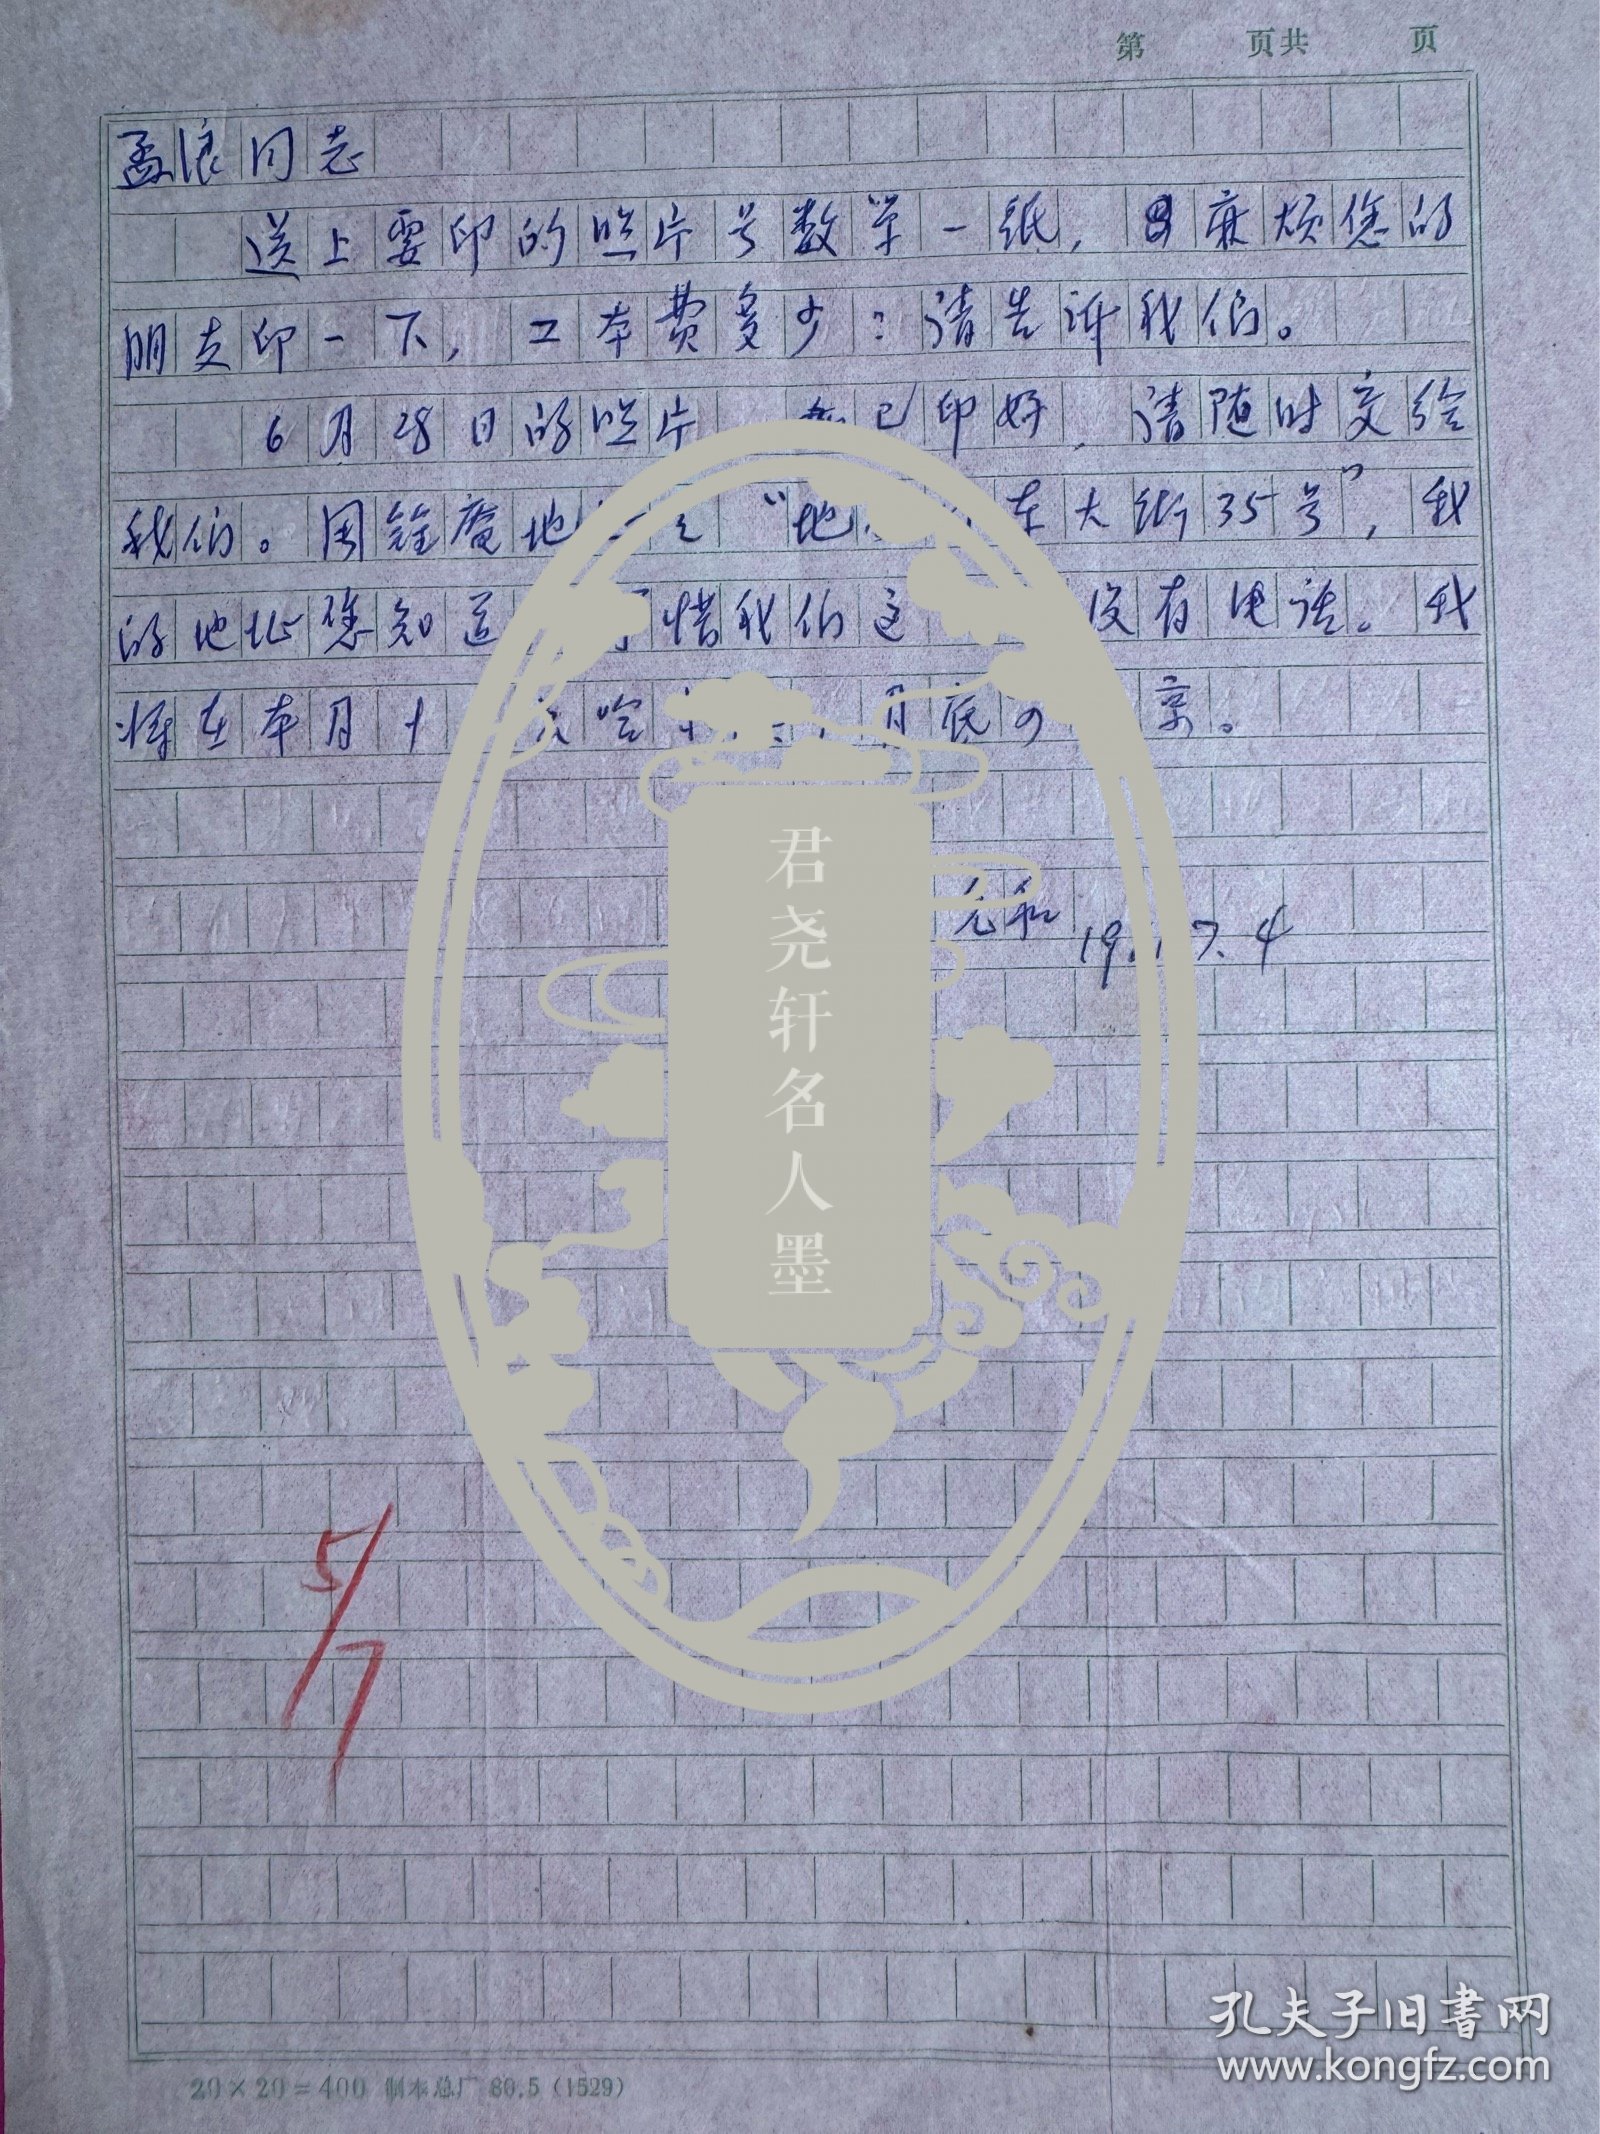 第 页共 页
孟浪同志
送上要印的照片号数单一纸，麻烦您的
朋友印一下，工本费多少？请告诉我们。
6月28日的照片 已印好，请随时交给
我们。周铨庵地 “地 东大街35号”，我
的地址您知道 惜我们这 没有电话。我
将在本月十 哈 月底 京。
允和
19 7.4
君尧轩名人墨
5/7
孔夫子旧书网
www.kongfz.com
20×20=400 制本总厂 80.5 (1529)